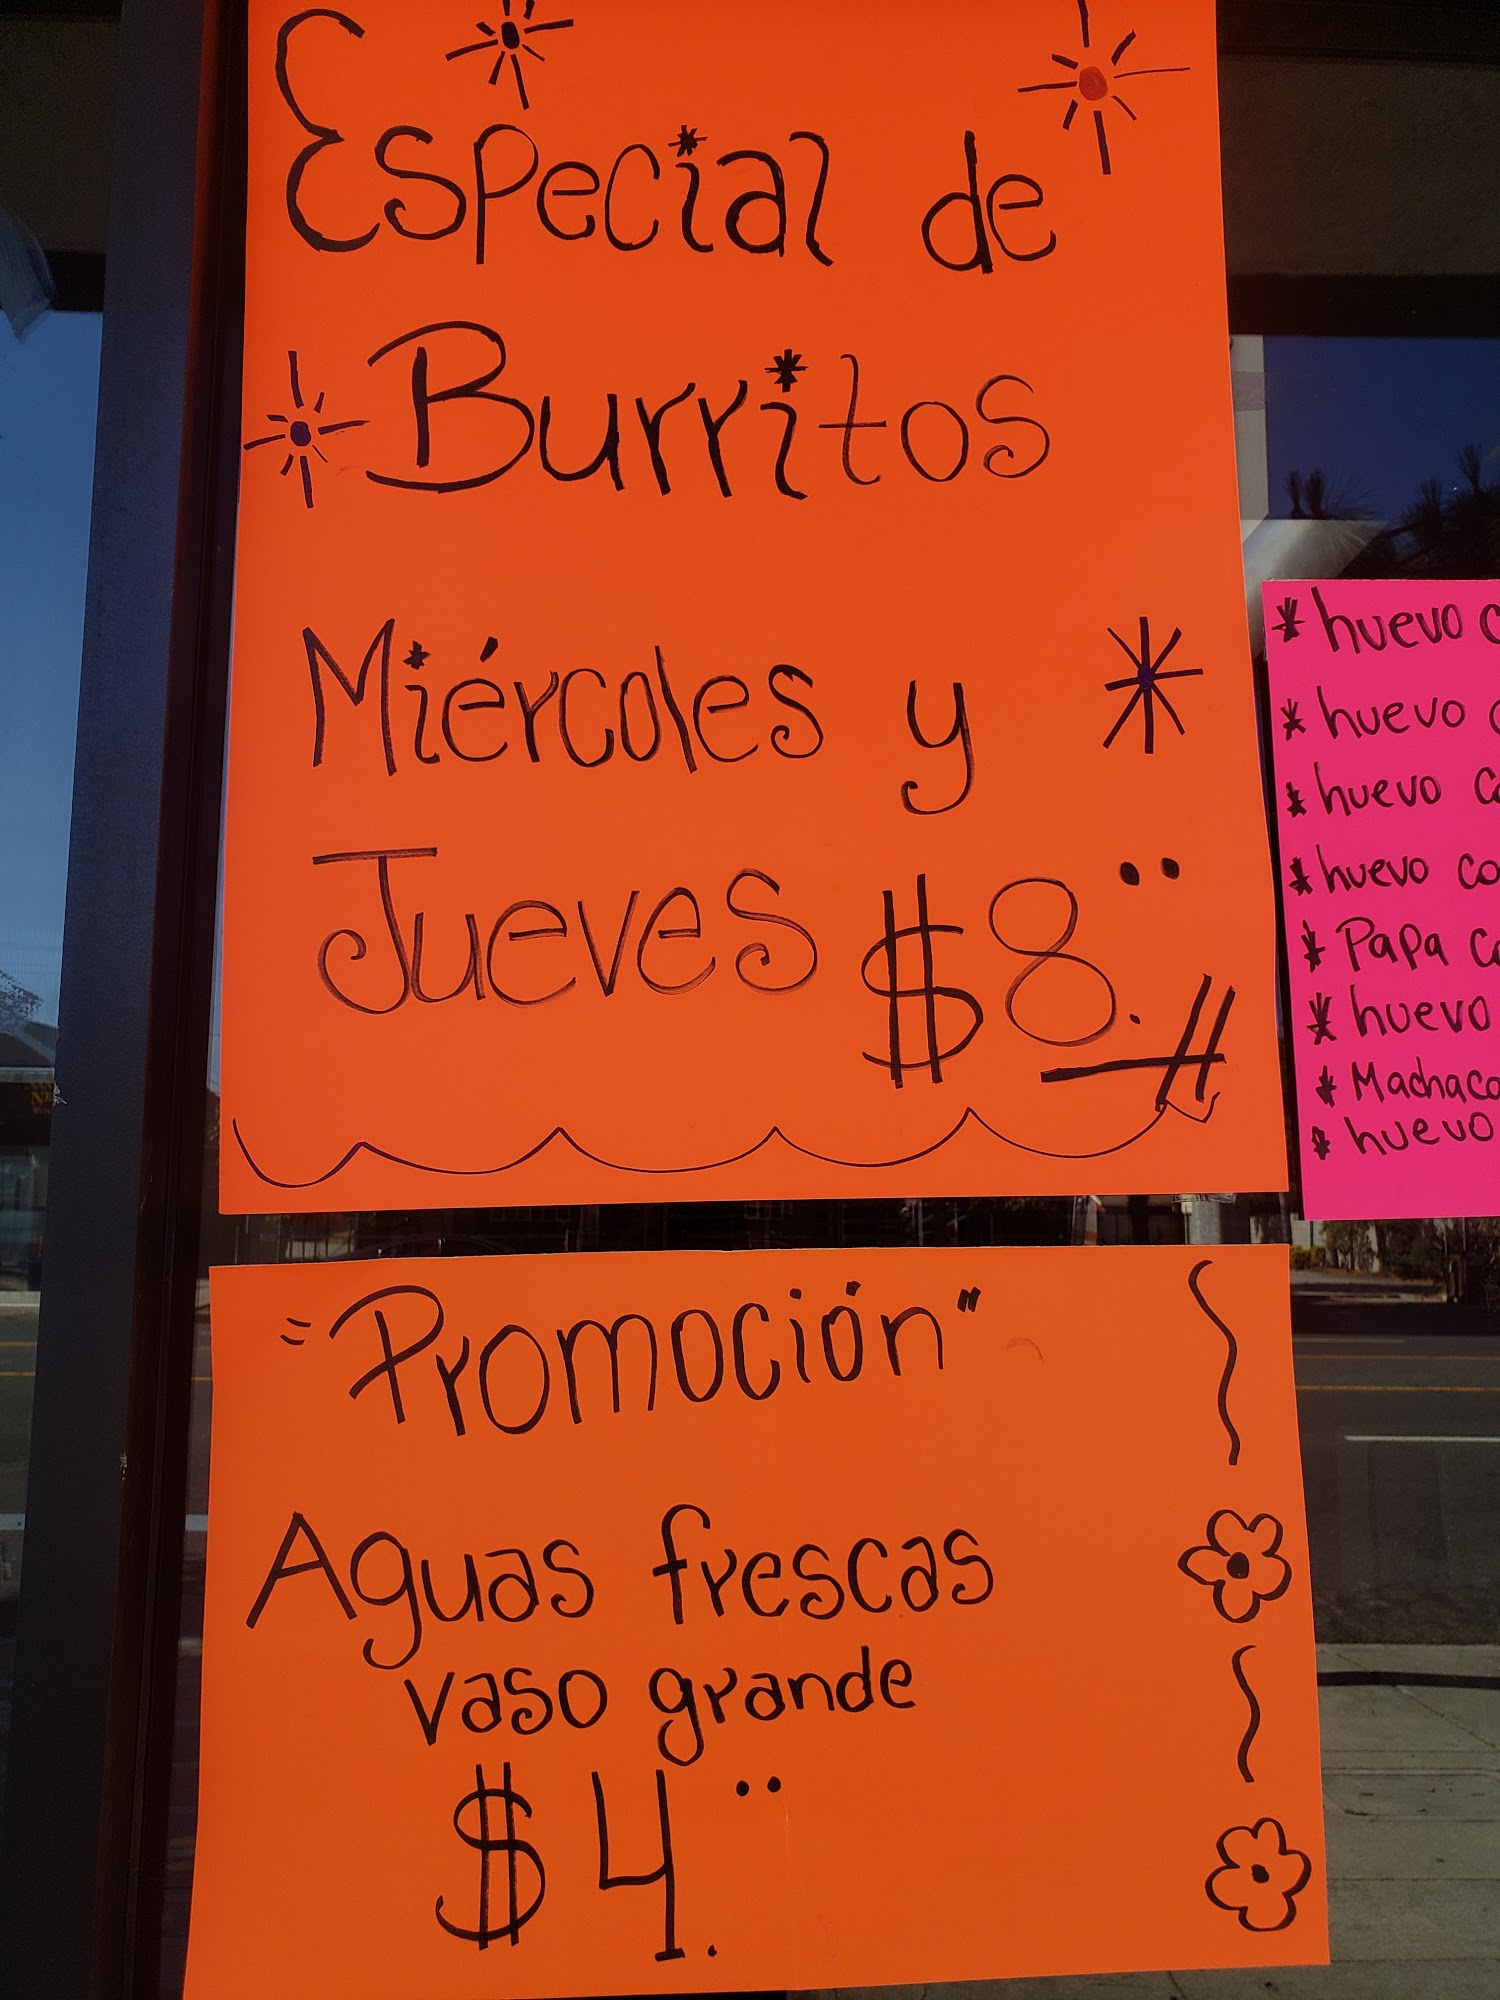 Especial de
Burritos
Miércoles y
Jueves $8.
"Promoción"
Aguas frescas
vaso grande
$4.
* huevo
* huevo
* huevo
* huevo
* Papa
* huevo
* Machaca
* huevo